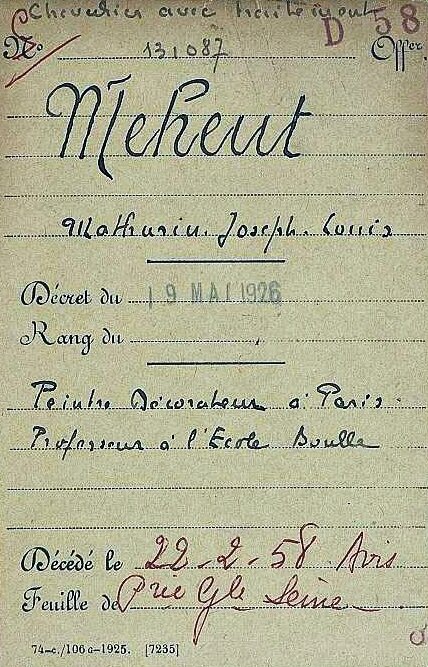 Chevalier avec traitement
D 58
No 131087 Offer.
Meheut
Mathurin. Joseph. Louis
Décret du 19 MAI 1926
Rang du
Peintre Décorateur à Paris.
Professeur à l'Ecole Boulle
Décédé le 22-2-58 Avis
Feuille de Prie Gle Seine
74-c./106 G-1925. [7235]